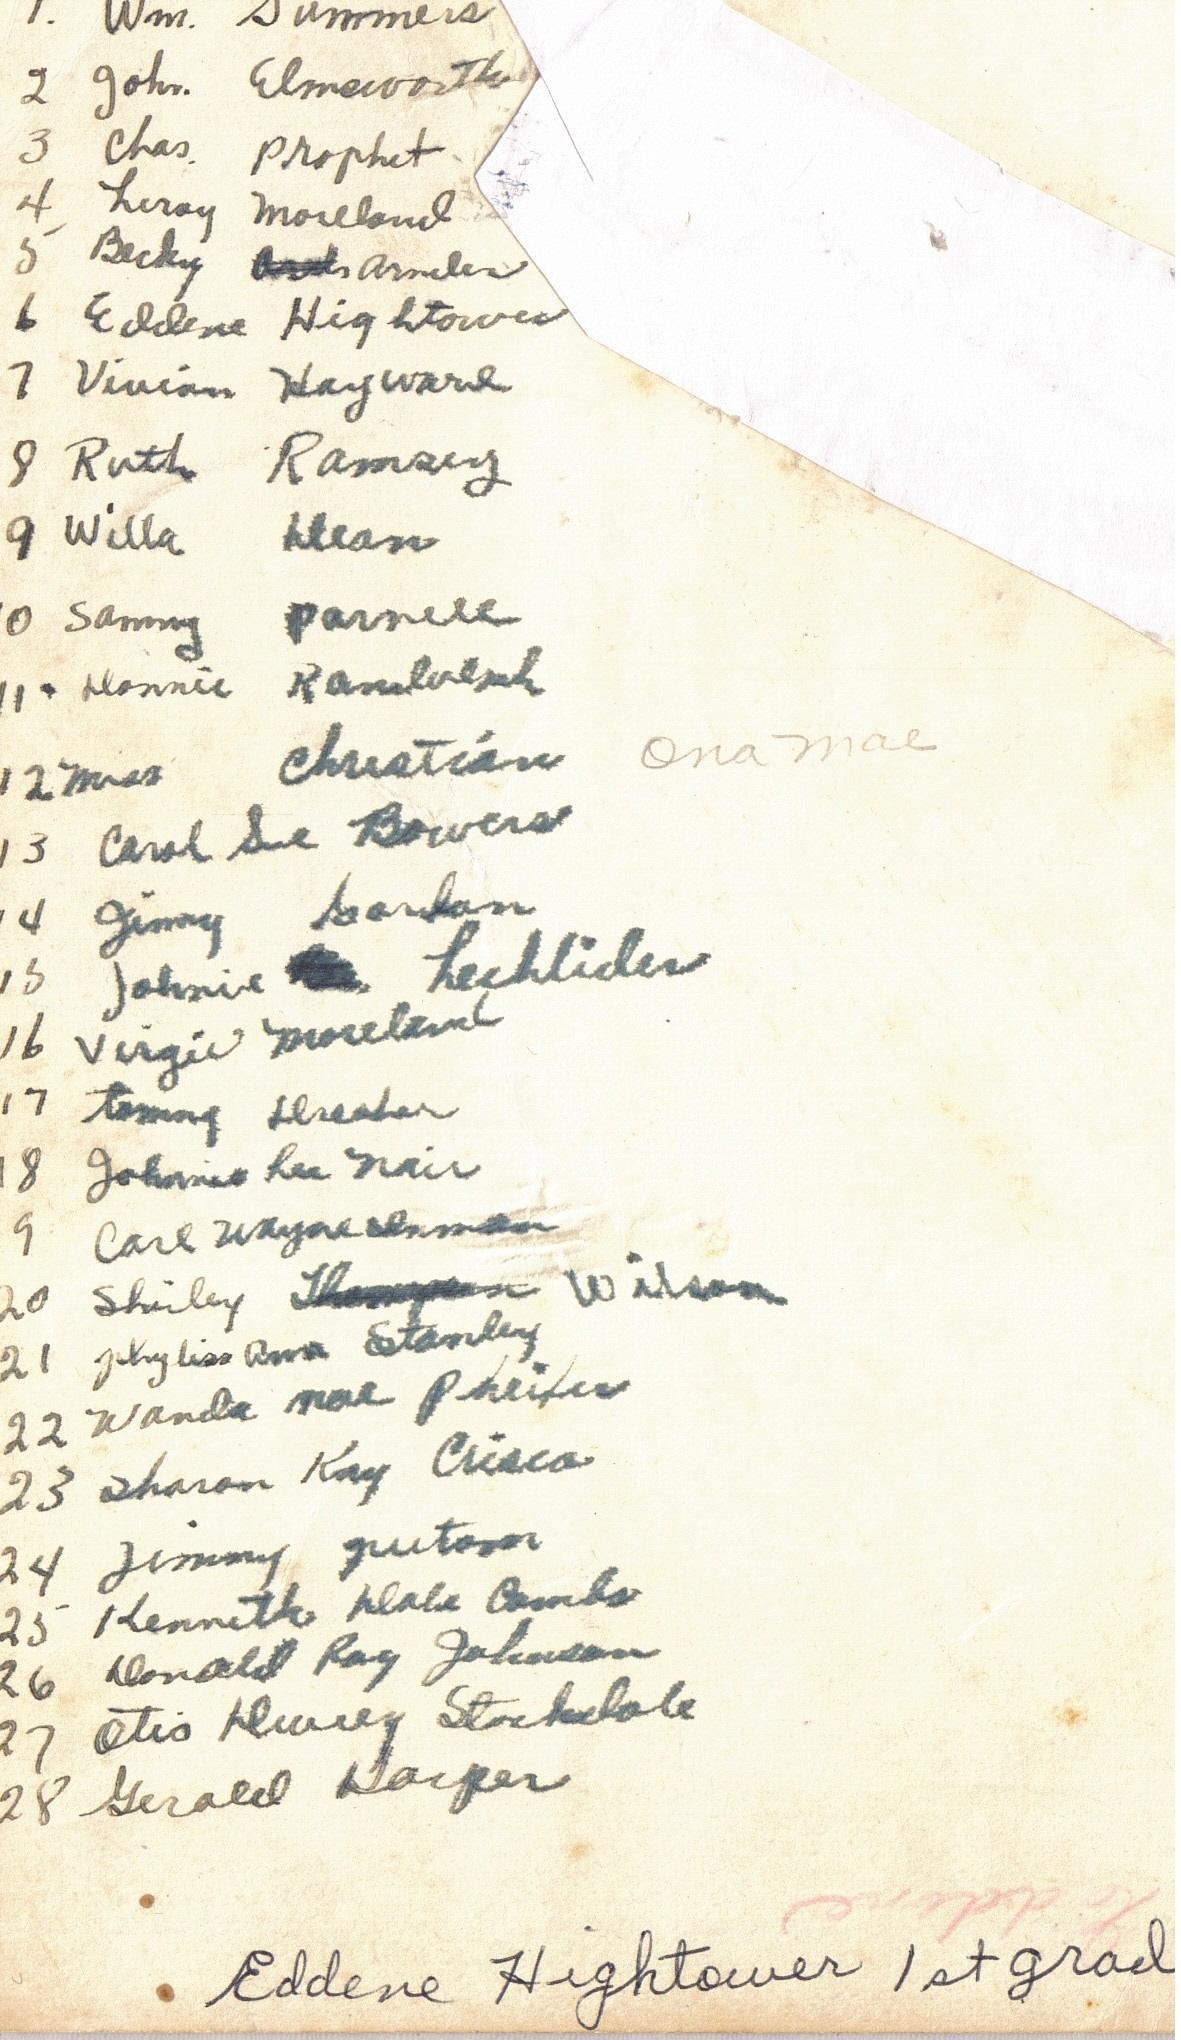 1. Wm. Summers
2 John. Elmsworth
3 Chas. Prophet
4 Leroy Moreland
5 Becky Arnder
6 Eddene Hightower
7 Vivian Hayward
8 Ruth Ramsey
9 Willa Dean
10 Sammy Parnell
11. Donnie Randolph
12 Miss Christian Ona Mae
13 Carol Sue Bowers
14 Jimmy Gordan
15 Johnie Lechlider
16 Virgie Moreland
17 Tommy
18 Johnnie Lee Nair
9 Carl Wayne Inman
20 Shirley Thompson Wilson
21 phyliss Ann Stanley
22 Wanda Mae Pheifer
23 Sharon Kay Crisco
24 Jimmy putam
25 Kenneth Dale Combs
26 Donald Ray Johnson
27 Otis Dewey Stockdale
28 Gerald Harper
Eddene Hightower 1st grad